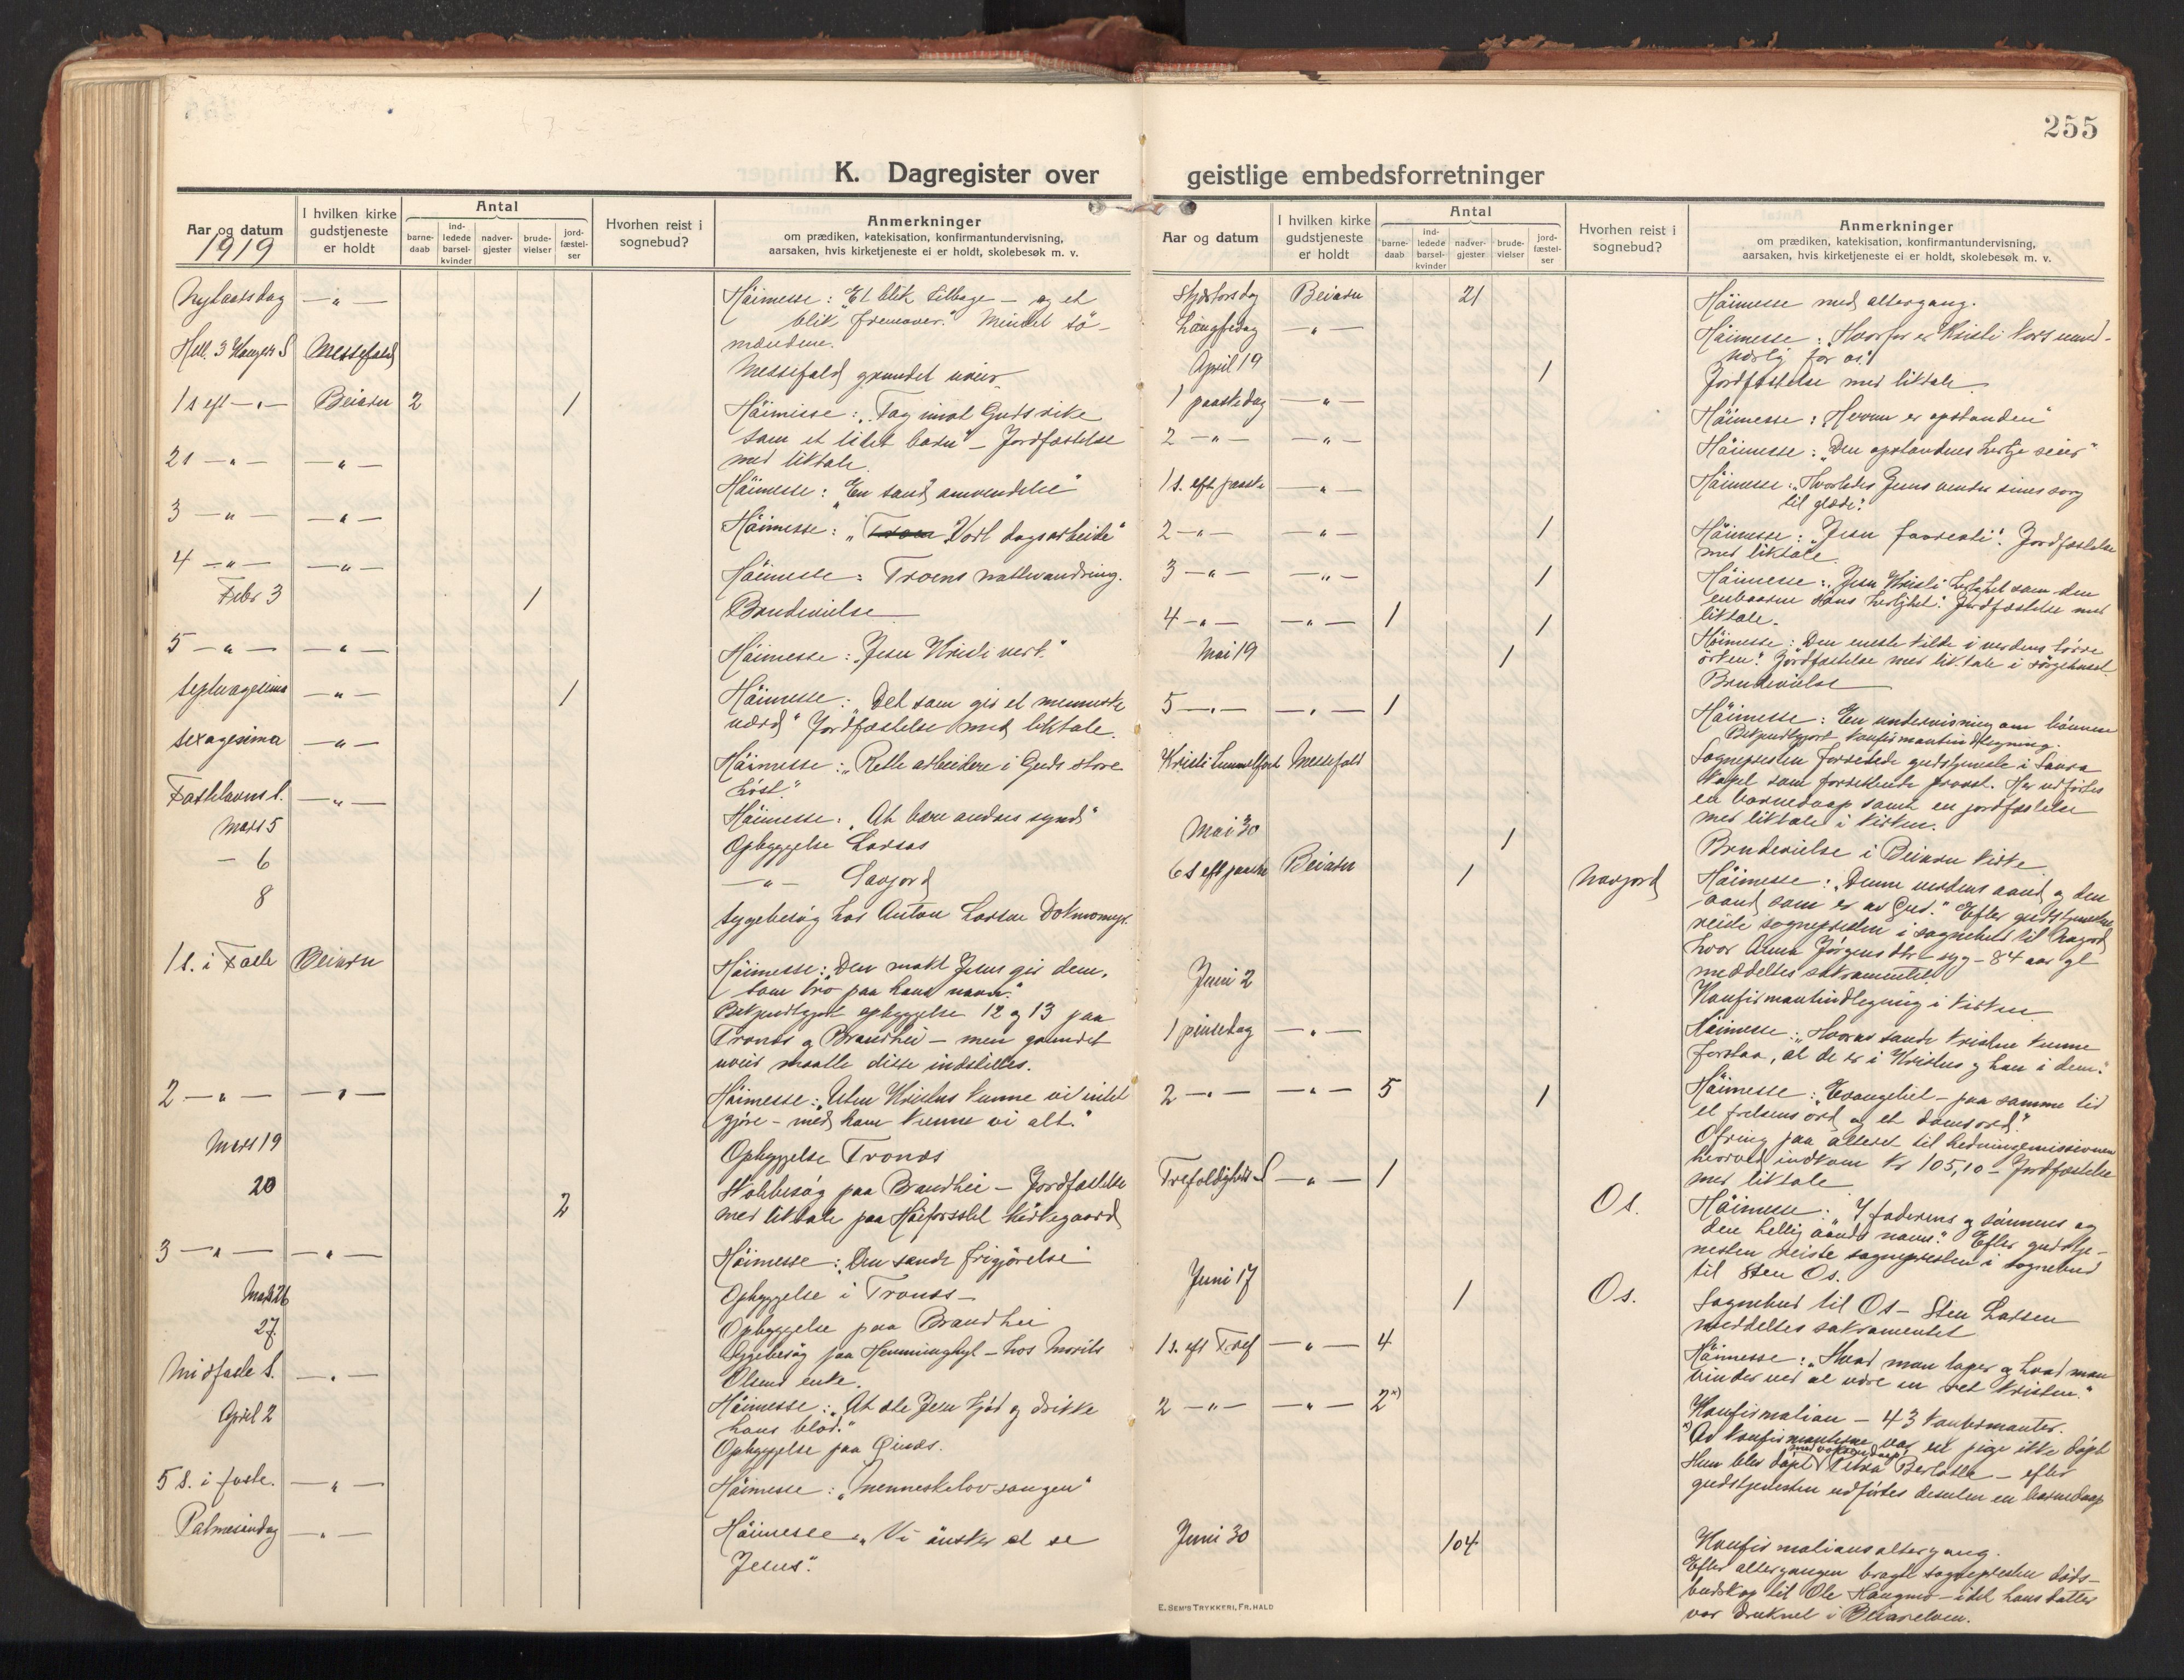 255
K. Dagregister over
Aar og datum
1919
I hvilken kirke gudstjeneste er holdt
Antal
barne-daab
ind-ledede barsel-kvinder
nadver-gjester
brude-vielser
jord-fæstel-ser
Hvorhen reist i sognebud?
Anmerkninger
om prædiken, katekisation, konfirmantundervisning,
aarsaken, hvis kirketjeneste ei er holdt, skolebesøk m. v.
Nytaarsdag — " — Höimesse: "Et blik tilbage — og et
blik fremover." Mindet sö-
mændene.
Hell. 3 Kongers S Messefald
Messefald grundet uveir.
1 s eft — " — Beiarn 2 1 Höimesse: "Tag imot Guds rike
som et litet barn" — Jordfæstelse
med liktale.
2 s — " — — " — Höimesse: "En sand omvendelse"
3 — " — — " — Höimesse: "Vort dagsarbeide"
4 — " — — " — Höimesse: Troens nattevandring.
Febr 3 1 Brudevielse
5 — " — — " — Höimesse: "Jesu Kristi verk."
Septuagesima — " — 1 Höimesse: "Det som gir et menneske
værd" Jordfæstelse med liktale.
Sexagesima — " — Höimesse: "Rette arbeidere i Guds store
höst."
Fastelavns s. — " — Höimesse: "At bære andres synd"
Mars 5 Opbyggelse Larsos
— 6 — " — Savjord
8 Sygebesög hos Anton Larsen Dokmomyr.
1 s. i Faste Beiarn Höimesse: "Den makt Jesus gir dem,
som tro paa hans navn."
Bekjendtgjort opbyggelse 12 og 13 paa
Tronds og Brandhei — men grundet
uveir maatte disse indstilles.
2 — " — — " — Höimesse: "Uten Kristus kunne vi intet
gjöre — med ham kunne vi alt."
Mars 19 Opbyggelse Tronds
20 2 Skolebesög paa Brandhei — Jordfæstelse
med liktale paa Höiforsslet kirkegaard
3 — " — — " — Höimesse: "Den sande frigjörelse"
Mars 26 Opbyggelse i Tronds —
27. Opbyggelse paa Brandhei
Sygebesög paa Hemminghyt — hos Morits
Olsens enke.
Midfaste S. — " — Höimesse: "At æte Jesu kjöd og drikke
hans blod."
April 2 Opbyggelse paa
5 S. i faste. — " — Höimesse: "Menneskelovsangen"
Palmesöndag — " — Höimesse "Vi önsker at se
Jesus."
geistlige embedsforretninger
Aar og datum
I hvilken kirke gudstjeneste er holdt
Antal
barne-daab
ind-ledede barsel-kvinder
nadver-gjester
brude-vielser
jord-fæstel-ser
Hvorhen reist i sognebud?
Anmerkninger
om prædiken, katekisation, konfirmantundervisning,
aarsaken, hvis kirketjeneste ei er holdt, skolebesøk m. v.
Skjærtorsdag Beiarn 21 Höimesse med altergang.
Langfredag — " — Höimesse: "Hvorfor er Kristi kors nund-
værlig for os"
April 19 1 Jordfæstelse med liktale
1 paaskedag — " — Höimesse: "Herren er opstanden"
2 — " — — " — Höimesse: "Den opstandenes herlige seier"
1 s. eft paaske — " — Höimesse: "Hvorledes Jesus vender sines sorg
til glæde."
2 — " — — " — 1 Höimesse: "Jesu faaresti". Jordfæstelse
med liktale
3 — " — — " — 1 Höimesse: "Jesu Kristi herlighet som den
enbaarne söns herlighet." Jordfæstelse med
liktale.
4 — " — — " — 1 1 Höimesse: "Den eneste kilde i verdens törre
örken." Jordfæstelse med liktale i sörgehuset.
Mai 19 1 Brudevielse
5 — " — — " — 1 Höimesse: En undervisning om bönnen
Bekjendtgjort konfirmantindtegning.
Kristi himmelfart Messefald
Sognepresten forrettede gudstjeneste i Saura
kapel som fung. provst. Her utförtes
en barnedaap samt en jordfæstelse
med liktale i kirken.
Mai 30 1 Brudevielse i Beiarn kirke
6 S eft paaske Beiarn 1 Navjord Höimesse: "Denne verdens aand og den
aand som er av Gud." Efter gudstjenesten
reiste sognepresten i sognebud til Navjord
hvor Anna Jörgensdtr — syg — 84 aar gl
meddeltes sakramentet
Juni 2 Konfirmantindtegning i kirken
1 pinsedag — " — Höimesse: "Hvoraf sande kristne kunne
forstaa, at de er i Kristus og han i dem."
2 — " — — " — 5 1 Höimesse: "Evangeliet — paa samme tid
et frelsens ord og et domsord."
Ofring paa alteret til hedningemissionen
hvorved indkom Kr 105,10 — Jordfæstelse
med liktale
Trefoldigheds S — " — 1 Os. Höimesse: "I faderens og sönnens og
den hellig aands navn." Efter gudstje-
nesten reiste sognepresten i sognebud
til Sten Os.
Juni 17 1 Os. Sognebud til Os — Sten Larsen
meddeltes sakramentet
1 s. eft Tref — " — 4 Höimesse: "Hvad man taper og hvad man
vinder ved at være en ret kristen."
2 — " — — " — 2 x) Konfirmation — 43 konfirmanter.
x) Av konfirmanterne var en pige ikke döpt
Hun blev döpt med voksendaap Petra Berlotte — efter
gudstjenesten utförtes desuten en barnedaap
Juni 30 104 Konfirmationsaltergang.
Efter altergangen bragte sognepresten döds-
budskap til Ole Haugmo — idet hans datter
var druknet i Beiarelven.
E. SEM'S TRYKKERI, FR.HALD